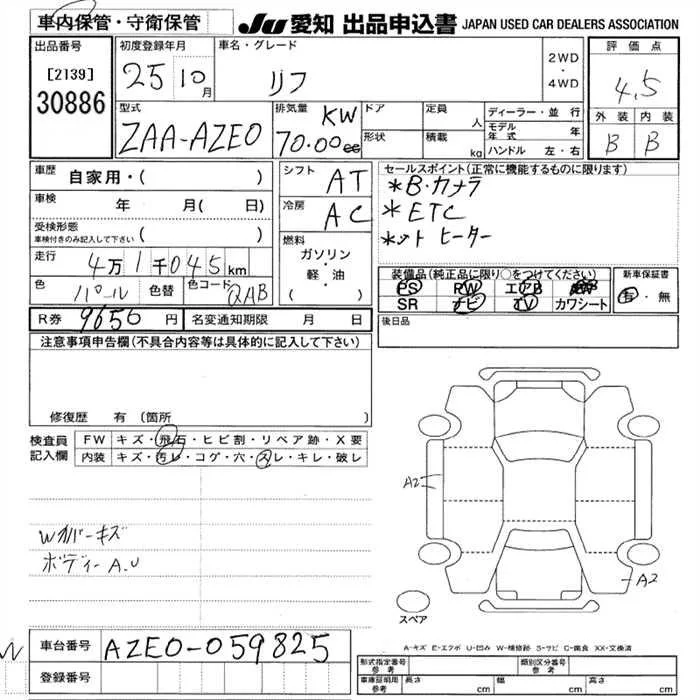 車内保管・守衛保管 JU 愛知 出品申込書 JAPAN USED CAR DEALERS ASSOCIATION
出品番号 初度登録年月 車名・グレード 2WD ・ 4WD 評価点
[2139] 25 10月 リフ 4.5
30886
型式 排気量 ドア 定員 人 ディーラー・並行 外装 内装
ZAA-AZE0 KW 70.00cc 形状 積載 kg モデル年式 年 B B
ハンドル 左・右
車歴 自家用・( ) シフト AT セールスポイント(正常に機能するものに限ります)
車検 年 月( 日) 冷房 AC *B・カメラ
受検形態 *ETC
車検付きのみ記入して下さい ( ) 燃料 *シート ヒーター
走行 4万1千045km ガソリン・軽・油 ( )
装備品(純正品に限り○をつけてください) 新車保証書
色 パール 色替 色コード QAB PS PW エアB 有・無
SR ナビ TV カワシート
R券 9650円 名変通知期限 月 日 後日品
注意事項申告欄(不具合内容等は具体的に記入して下さい)
修復歴 有(箇所
検査員記入欄 FW キズ・飛石・ヒビ割・リペア跡・X要
内装 キズ・汚レ・コゲ・穴・スレ・キレ・破レ
A2
Wカバーキズ
ボディーA.U
A2
スペア
A-キズ E-エクボ U-凹み W-補修跡 S-サビ C-腐食 XX-交換済
車台番号 AZE0-059825
登録番号
形式指定番号 参考 類別区分番号 参考
車庫証明用 参考 長さ cm 幅 cm 高さ cm